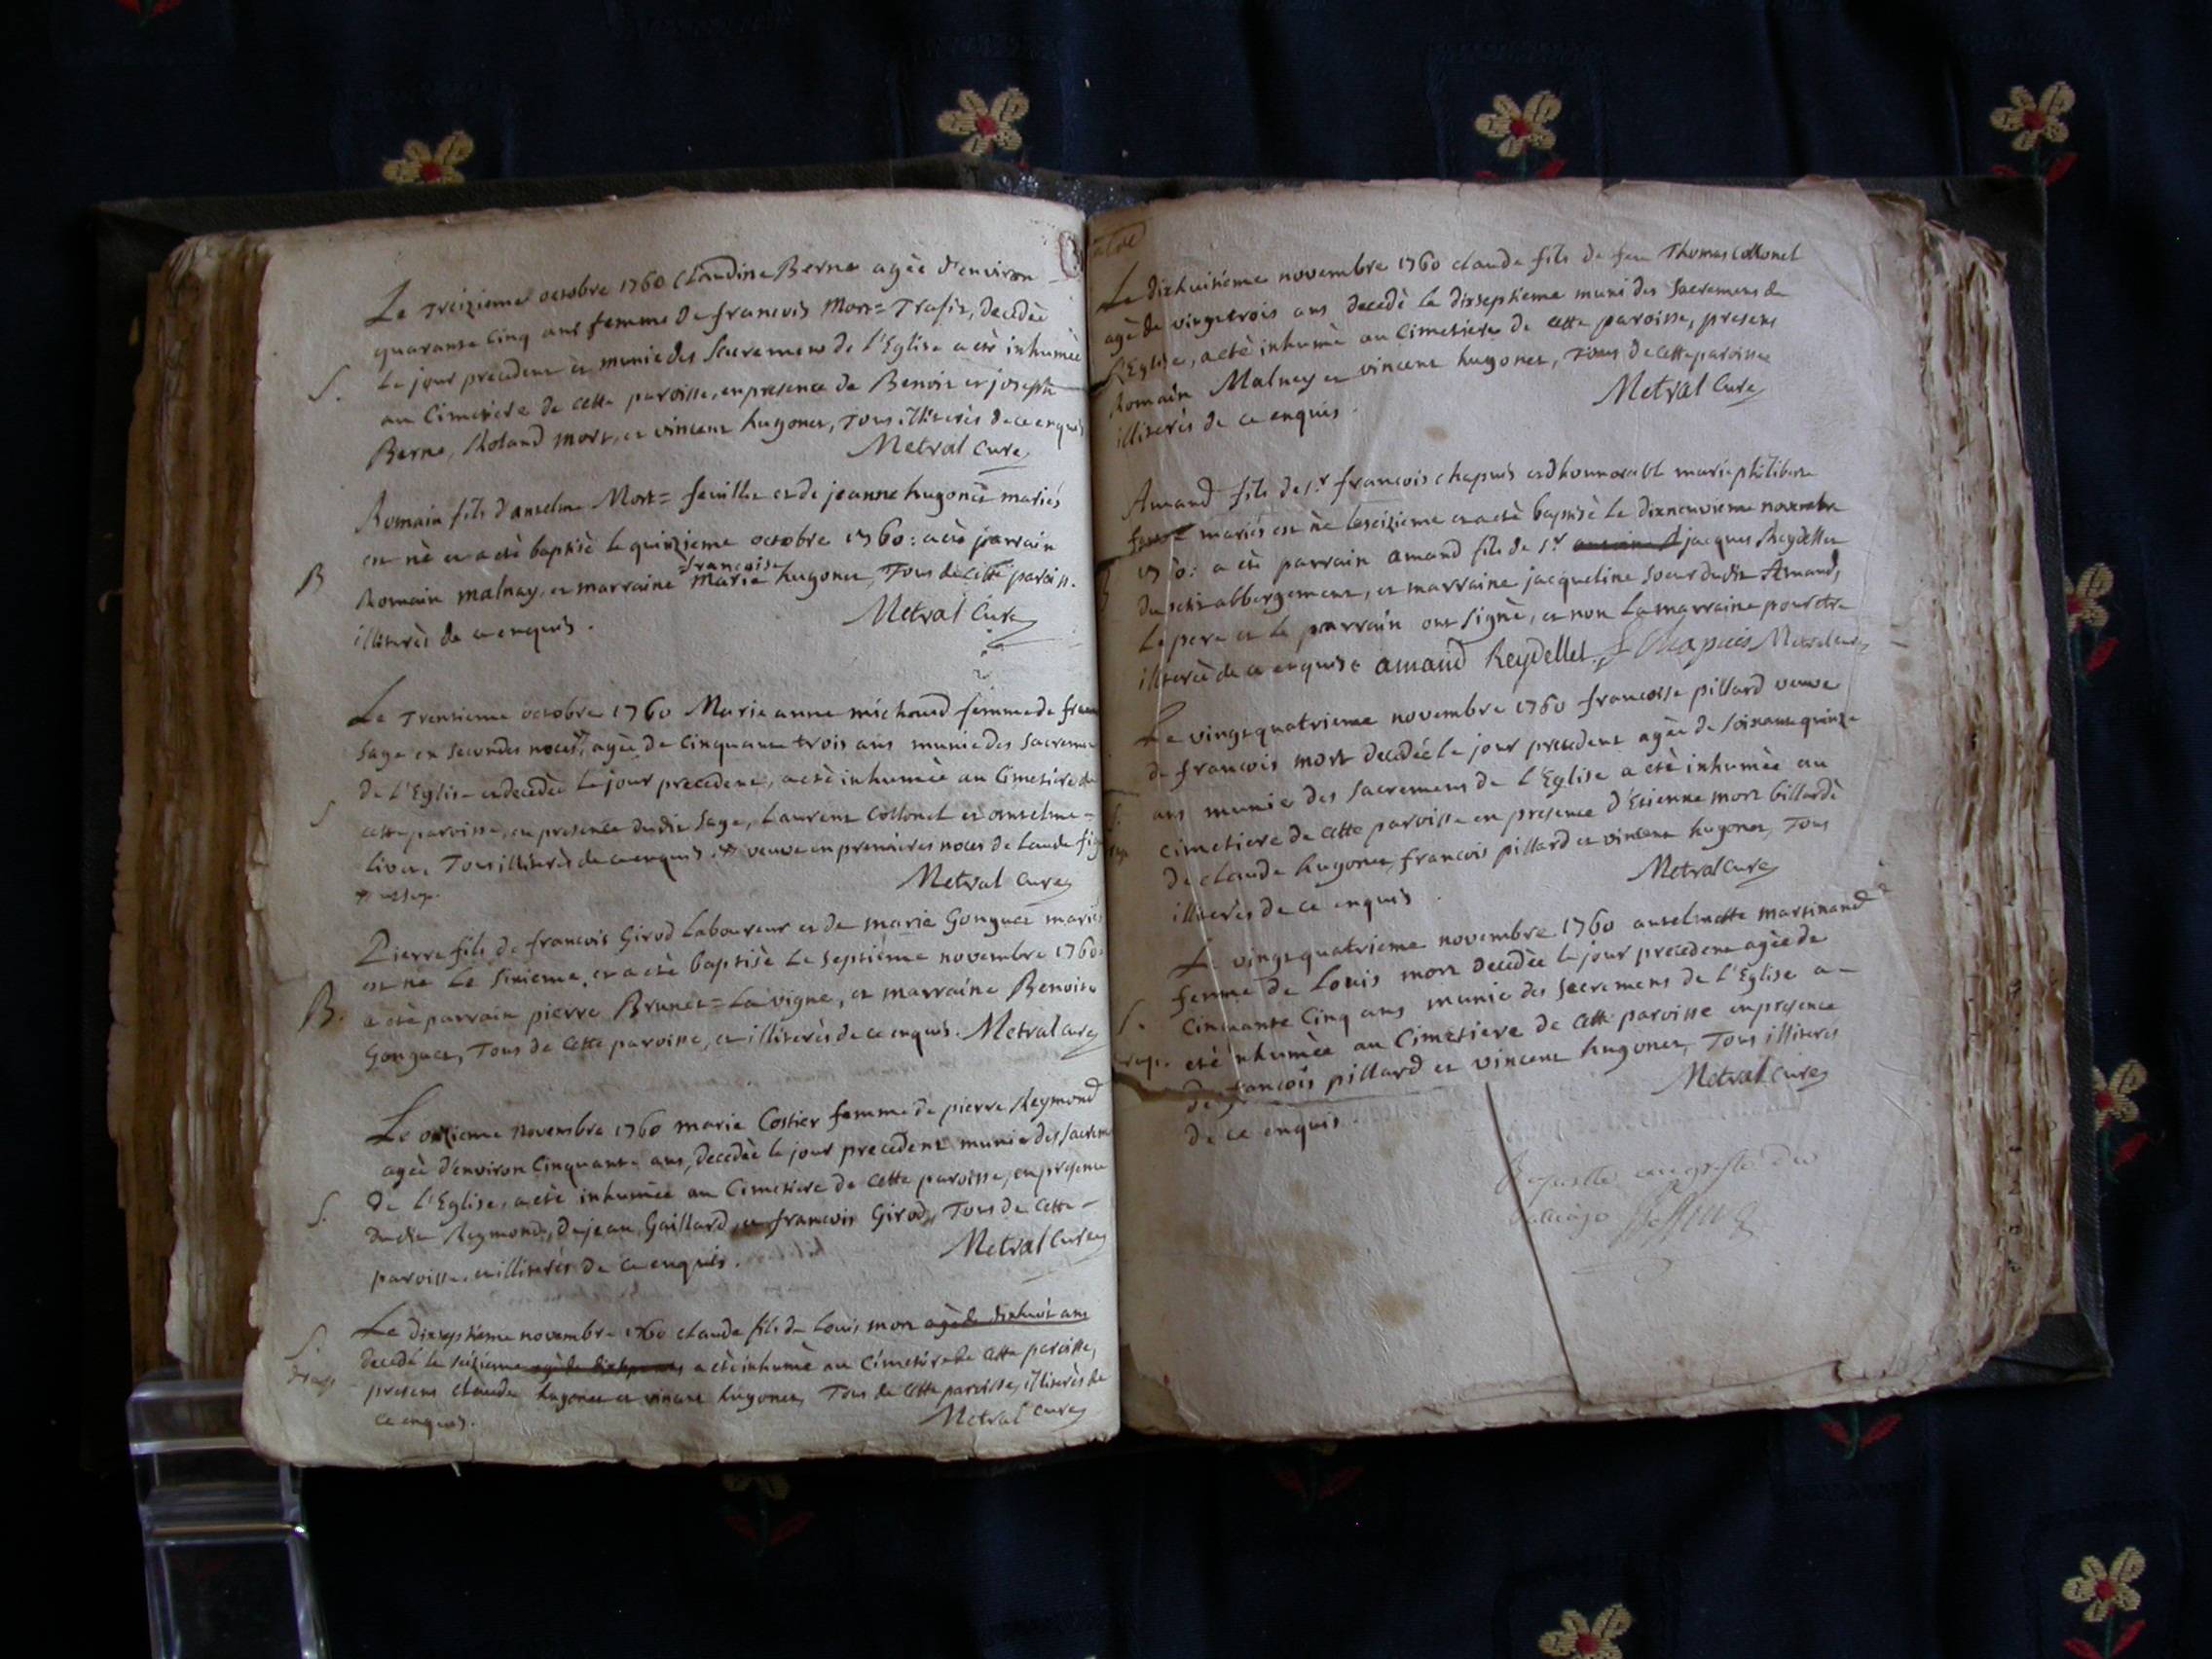 Le Treizieme octobre 1760 Claudine Berne agèe d'environ
quarante Cinq ans femme de francois Mort= Trafis, decedèe
S. Le jour precedent et munie des Sacremens de l'Eglise a etè inhumèe
au Cimetiere de cette paroisse, en presence de Benoit et joseph
Berne, Roland mort, et vincent hugonet, Tous illiterès de ce enquis
Metral Curé
Romain fils d'anselme Mort= feuille et de jeanne hugonet mariès
est nè et a etè baptisè le quinzieme octobre 1760: a etè parrain
francoise
B Romain malnay, et marraine Marie hugonet, Tous de cette paroiss.
illiterès de ce enquis.
Metral Curé
Le Trentieme octobre 1760 Marie anne michoud femme de
Sage en Secondes noces, agèe de Cinquante trois ans munie des Sacremen
de l'Eglise et decedèe Le jour precedent, a etè inhumèe au Cimetiere de
S cette paroisse, en presence dudit Sage, Laurent Collonel et anselme
Tous illiterès de ce enquis. veuve en premieres noces de Claude
Metral Curé
Pierre fils de francois Girod Laboureur et de marie Gonguet mariès
est nè Le Sixieme, et a etè baptisè Le Septième novembre 1760:
B. a etè parrain pierre Brunet= La vigne, et marraine Benoite
Gonguet, Tous de Cette paroisse, et illiterès de ce enquis. Metral Curé
Le onzieme novembre 1760 marie Costier femme de pierre Reymond
agèe d'environ Cinquante ans, decedèe le jour precedent munie des Sacrem
S. de l'Eglise, a etè inhumèe au Cimetiere de Cette paroisse, en presence
dudit Reymond, de jean Gaillard, et francois Girod, Tous de Cette
paroisse, et illiterès de ce enquis.
Metral Curé
S. Le dixseptieme novembre 1760 claude fils de Louis mort agè de dixhuit ans
decedè le seizieme a etè inhumè au Cimetiere de Cette paroisse,
presens claude hugonet et vincent hugonet, Tous de Cette paroisse, illiterès de
ce enquis.
Metral Curé
Le dixhuitieme novembre 1760 claude fils de feu Thomas Collonel
agè de vingt trois ans decedè le dixseptieme muni des Sacremens de
l'Eglise, a etè inhumè au Cimetiere de Cette paroisse, presens
Romain Malnay et vincent hugonet, Tous de Cette paroisse
illiterès de ce enquis.
Metral Curé
Amand fils de sr. francois Chapuis et d'honnorable marie philiberte
mariès est nè le seizieme et a etè baptisè Le dixneuvieme novembre
1760: a etè parrain amand fils de sr. jacques Reydellet
du petit abbergement, et marraine jacqueline Soeur dudit Amand,
Le pere et le parrain ont Signè, et non La marraine pour etre
illiterèe de ce enquise amand Reydellet. Chapuis Metral curé
Le vingt quatrieme novembre 1760 francoise pillard veuve
de francois mort decedèe le jour precedent agèe de soixante quinze
S. ans munie des Sacremens de l'Eglise a etè inhumèe au
cimetiere de cette paroisse en presence d'Etienne mort billardè
de claude hugonet, francois pillard et vincent hugonet, Tous
illiterès de ce enquis
Metral Curé
Le vingt quatrieme novembre 1760 anselmette martinand
femme de Louis mort decedèe le jour precedent agèe de
S. Cinquante Cinq ans munie des Sacremens de l'Eglise a
etè inhumèe au Cimetiere de Cette paroisse en presence
de francois pillard et vincent hugonet, Tous illiterès
de ce enquis.
Metral Curé